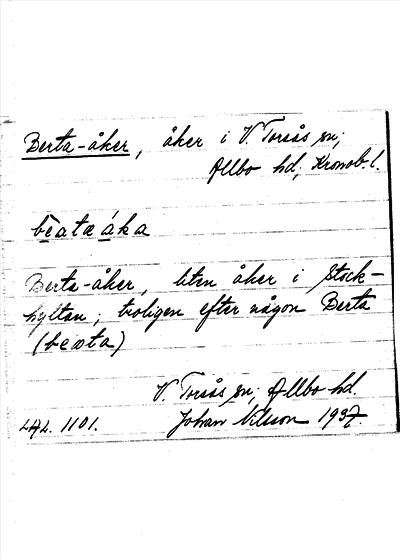 Berta-åker, åker i V. Torsås sn;
Allbo hd; Kronob. l.
bèatæ áka
Berta-åker, liten åker i Stock-
hyltan; troligen efter någon Berta
(beata)
V. Torsås sn; Allbo hd.
LAL. 1101. Johan Nilsson 1937.